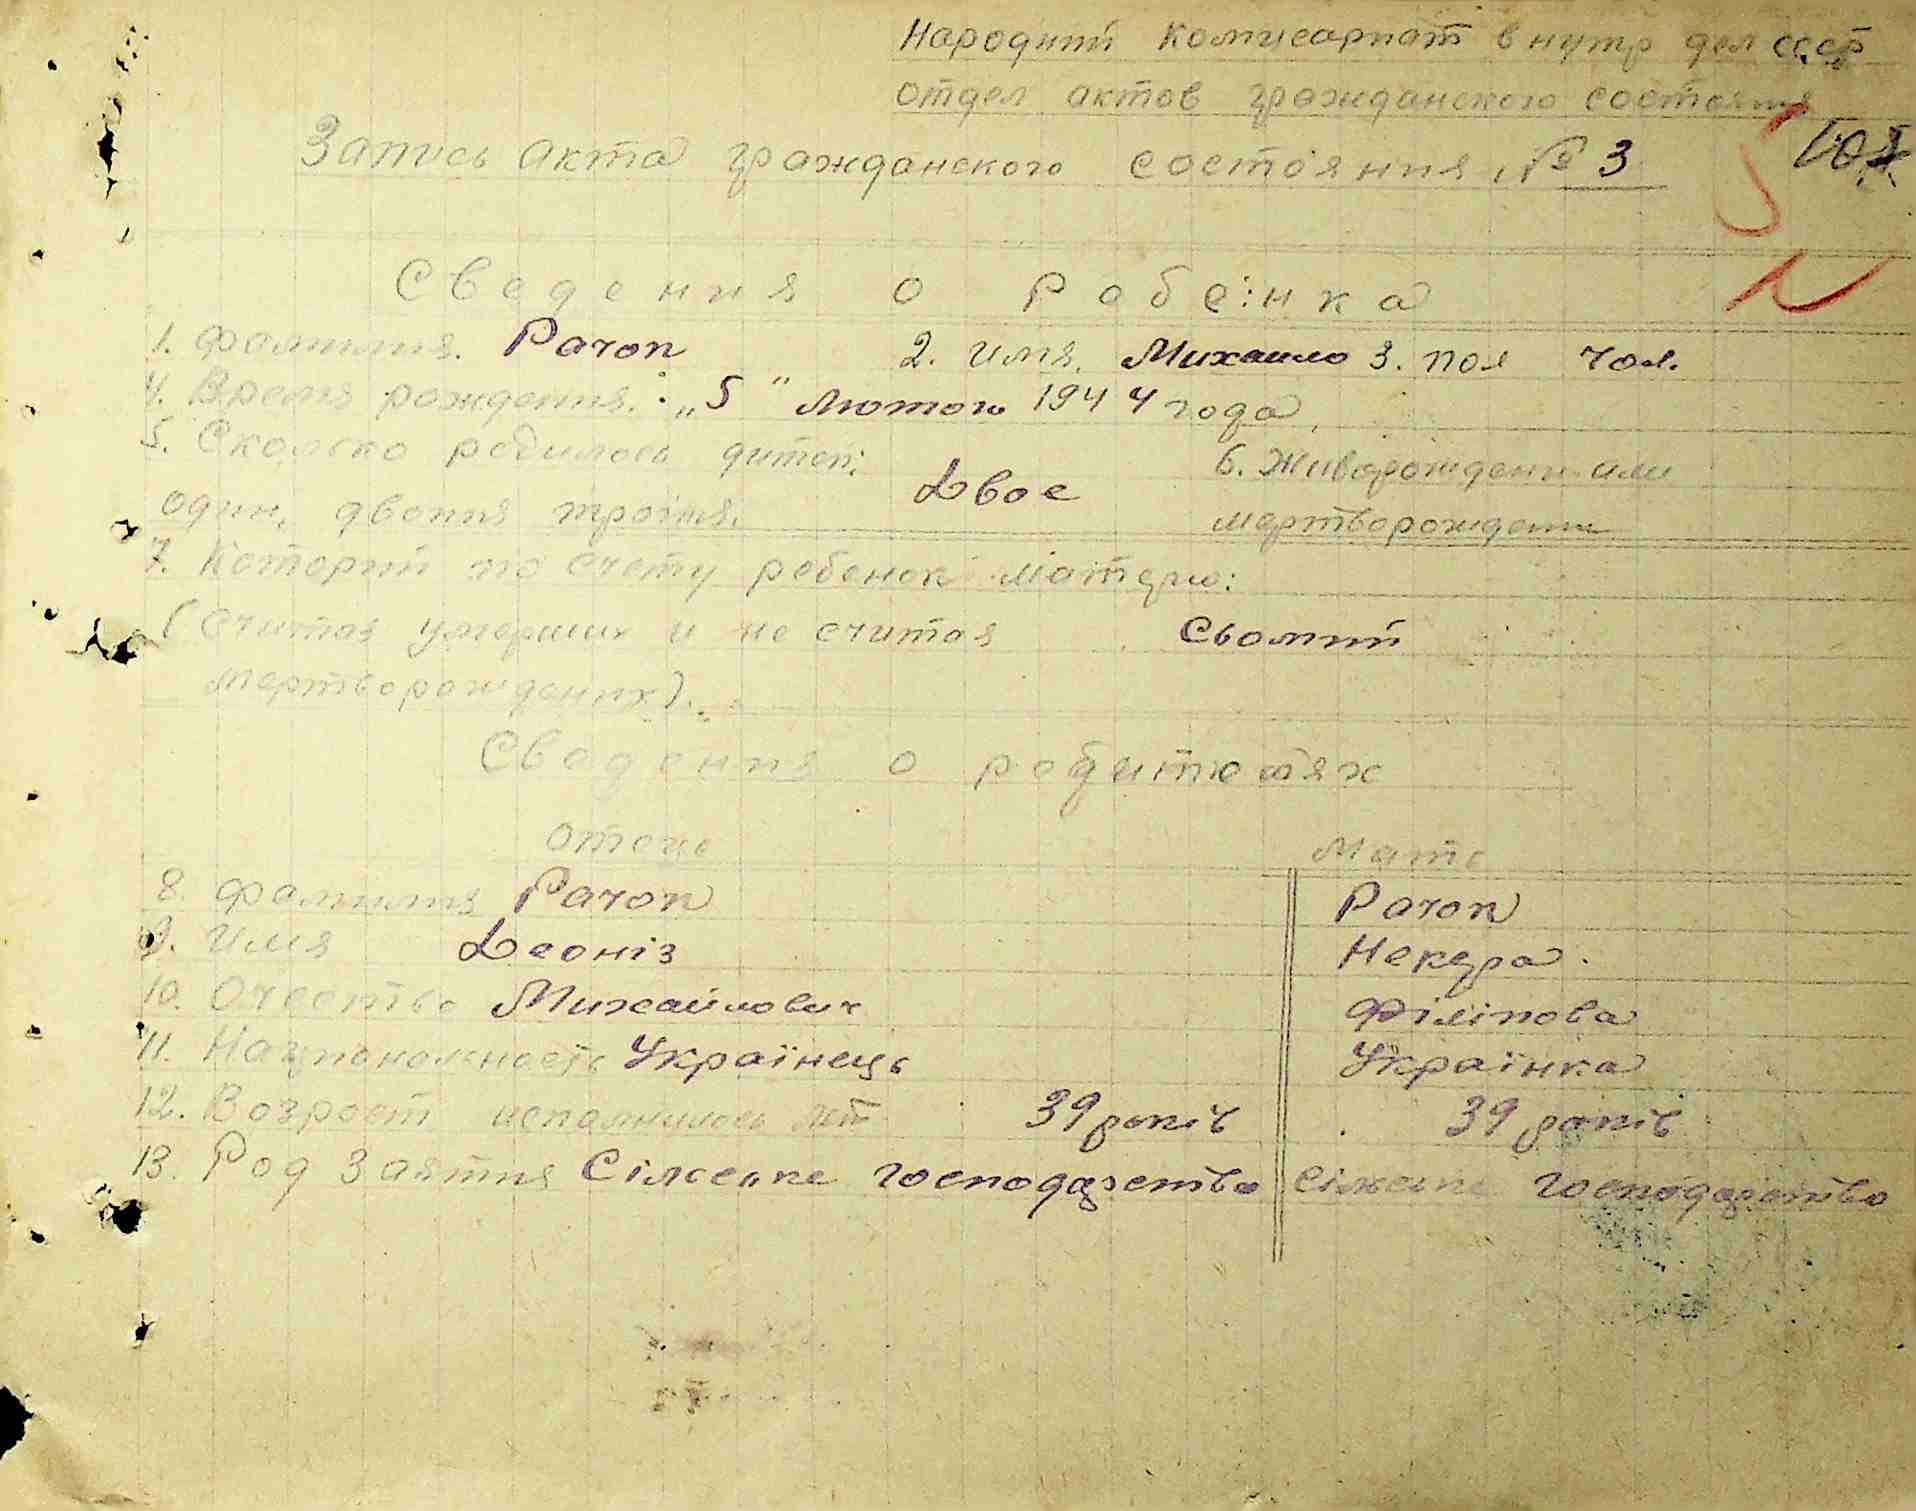 Народний Комисариат внутр дел СССР
отдел актов гражданского состояния
Запись акта гражданского состояния № 3
Сведения о Ребёнка
1. Фамилия. Рачок 2. Имя. Михаило 3. пол чол.
4. Время рождения. „5" Лютого 1944 года
5. Сколько родилось дитей: Двое 6. Живорождени или
один, двойня тройня. мертворождени
7. Которий по счету ребенок матерю:
(Считая умерших и не считая Сьомий
мертворождених).
Сведения о родителях
Отець Мать
8. Фамилия Рачок Рачок
9. Имя Леоніз
10. Очество Михайлович Філіпова
11. Национальность Українець Українка
12. Возраст исполнилось лет 39 років 39 років
13. Род Заятия Сільське господарство Сільське господарство